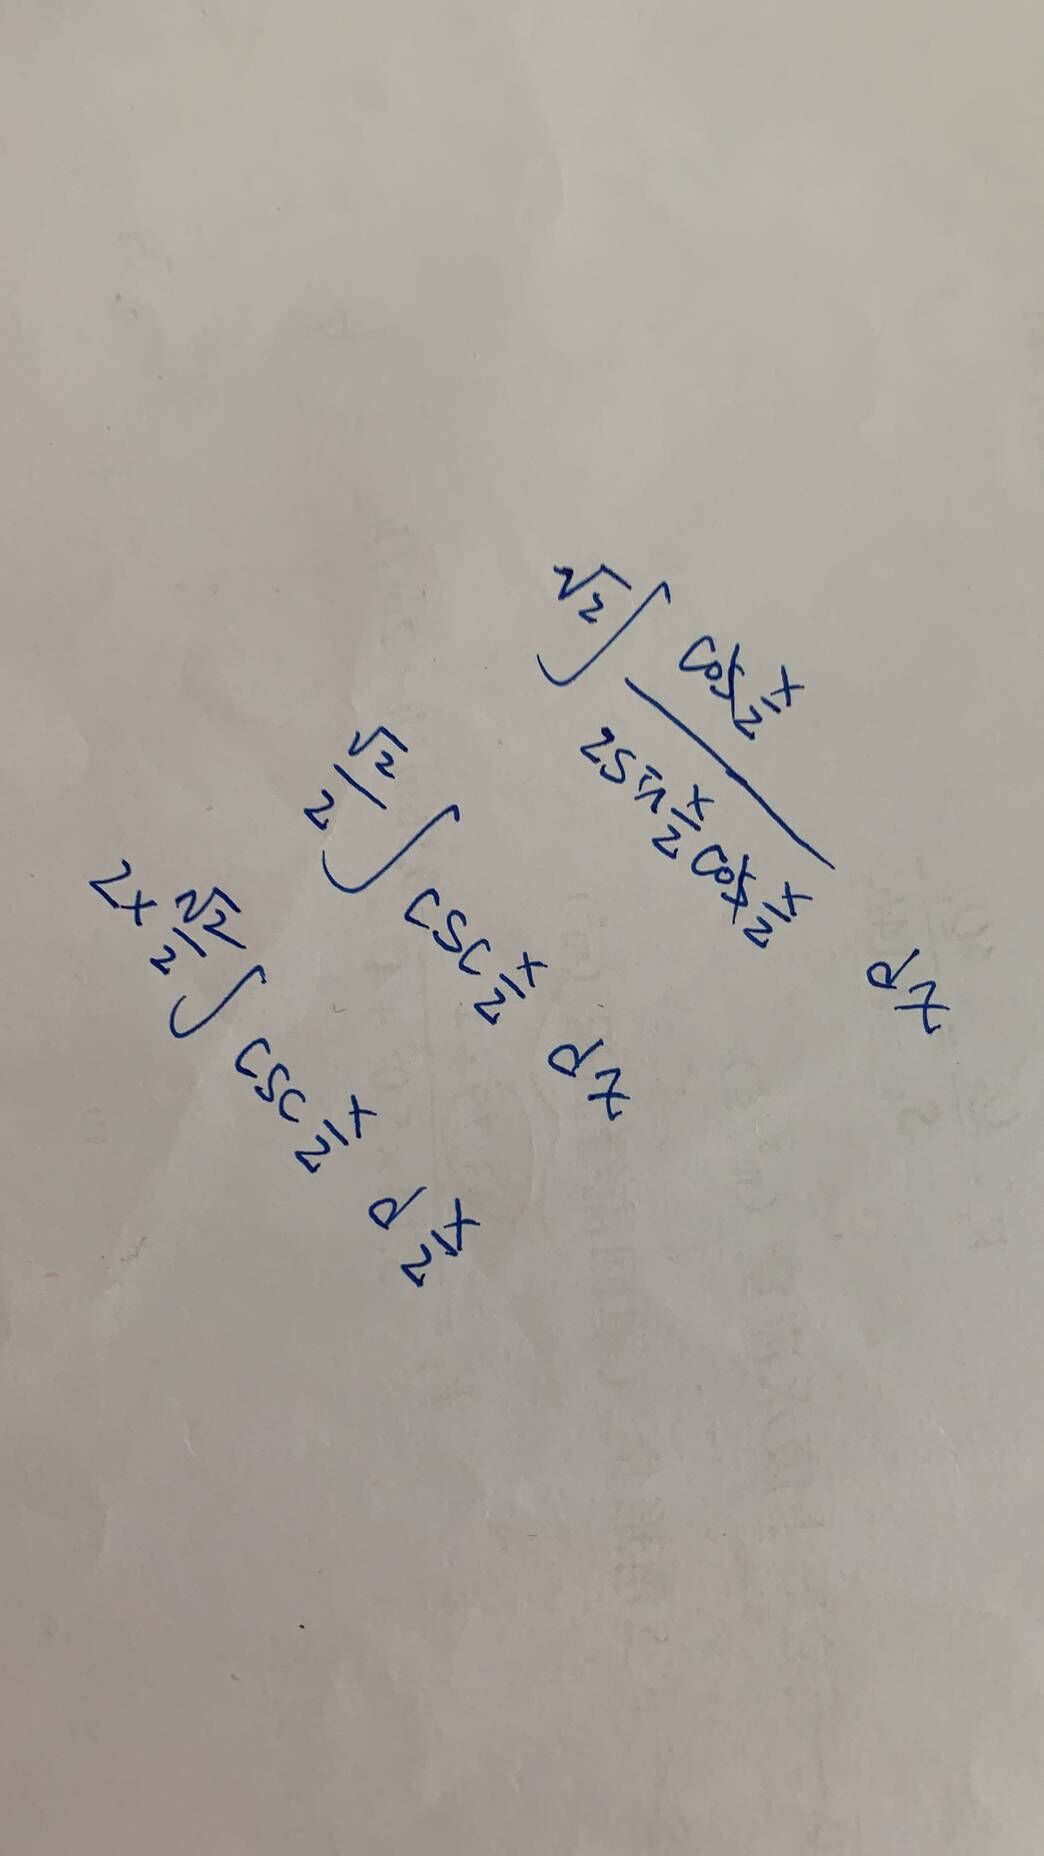 √2 ∫ cos x/2 / 2sin x/2 cos x/2 dx
√2/2 ∫ csc x/2 dx
2× √2/2 ∫ csc x/2 d x/2